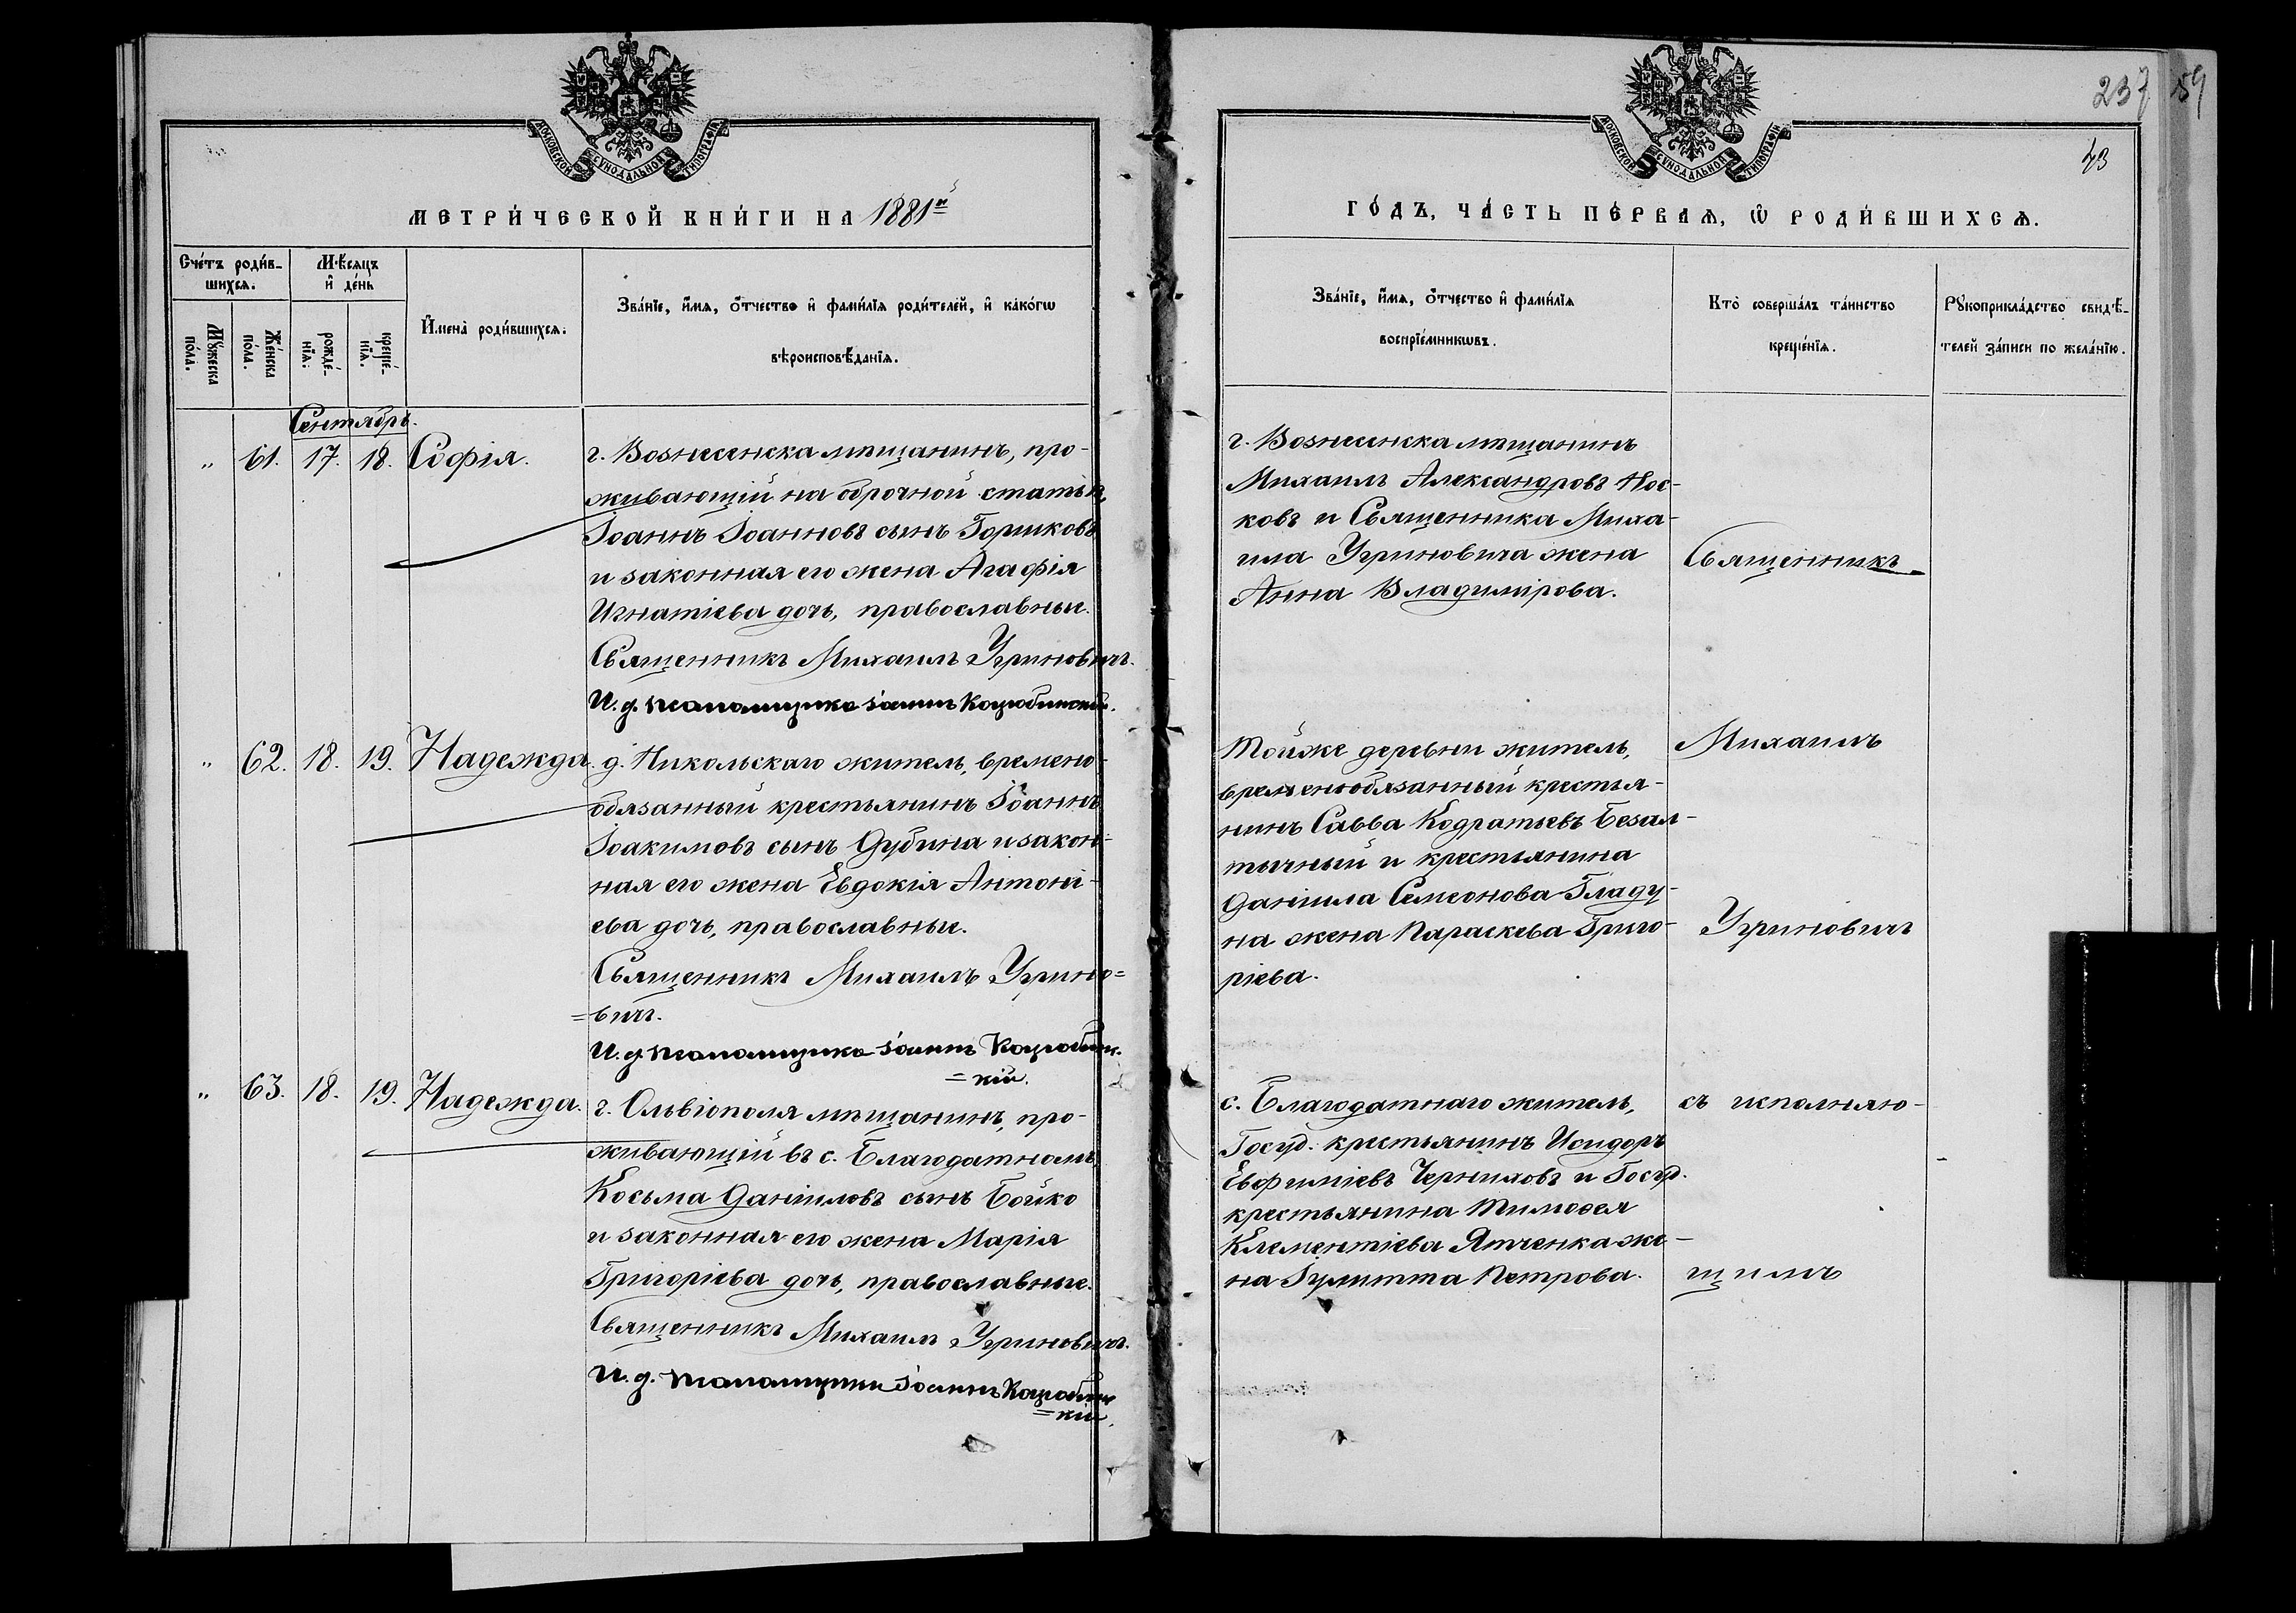 237 159
43
МОСКОВСКОЙ СѴНОДАЛЬНОЙ ТИПОГРАФІИ
МОСКОВСКОЙ СѴНОДАЛЬНОЙ ТИПОГРАФІИ
МЕТРИ́ЧЕСКОЙ КНИ́ГИ НА 1881й
ГО́ДЪ, ЧА́СТЬ ПЕ́РВАѦ, Ѡ҆ РОДИ́ВШИХСѦ.
Сче́тъ роди́в-
шихсѧ.
Мꙋ́жеска
по́ла.
Же́нска
по́ла.
Мѣ́сѧцъ
и҆ де́нь
рожде́-
нїѧ.
креще́-
нїѧ.
И҆мена̀ роди́вшихсѧ.
Зва́нїе, и҆́мѧ, ѻ҆́тчество и҆ фами́лїѧ роди́телей, и҆ како́гѡ
вѣроисповѣ́данїѧ.
Зва́нїе, и҆́мѧ, ѻ҆́тчество и҆ фами́лїѧ
воспрїе́мникѡвъ.
Кто̀ соверша́лъ та́инство
креще́нїѧ.
Рꙋкоприкла́дство свидѣ́-
телей за́писи по жела́нїю.
Сентябрь.
„ 61. 17. 18. Софія.
г. Вознесенска мѣщанинъ, про-
живающій на оброчной статьѣ,
Іоаннъ Іоанновъ сынъ Горшковъ
и законная его жена Агафія
Игнатіева дочь, православные.
Священникъ Михаилъ Угриновичъ.
И. д. псаломщика Іоаннъ Коцюбинскій.
г. Вознесенска мѣщанинъ
Михаилъ Александровъ Нос-
ковъ и Священника Миха-
ила Угриновича жена
Анна Владимірова.
Священникъ
„ 62. 18. 19. Надежда.
д. Никольскаго житель, времено-
обязанный крестьянинъ Іоаннъ
Іоакимовъ сынъ Дубина и закон-
ная его жена Евдокія Антоні-
ева дочь, православные.
Священникъ Михаилъ Угрино=
=вичъ.
И. д. псаломщика Іоаннъ Коцюбинс-
=кій.
Тойже деревни житель,
временообязанный крестья-
нинъ Савва Кодратьевъ Безал-
тычный и крестьянина
Даніила Семеонова Гладу-
на жена Параскева Григо-
ріева.
Михаилъ
Угриновичъ
„ 63. 18. 19. Надежда.
г. Ольвіополя мѣщанинъ, про-
живающій въ с. Благодатномъ,
Косьма Даніиловъ сынъ Бойко
и законная его жена Марія
Григоріева дочь, православные.
Священникъ Михаилъ Угриновичъ.
И. д. псаломщика Іоаннъ Коцюбинс
=кій.
с. Благодатнаго житель,
Госуд. крестьянинъ Исидоръ
Евфиміевъ Черниховъ и Госуд.
крестьянина Тимоѳея
Клементіева Ятченка же-
на Іулитта Петрова.
съ исполняю-
щимъ